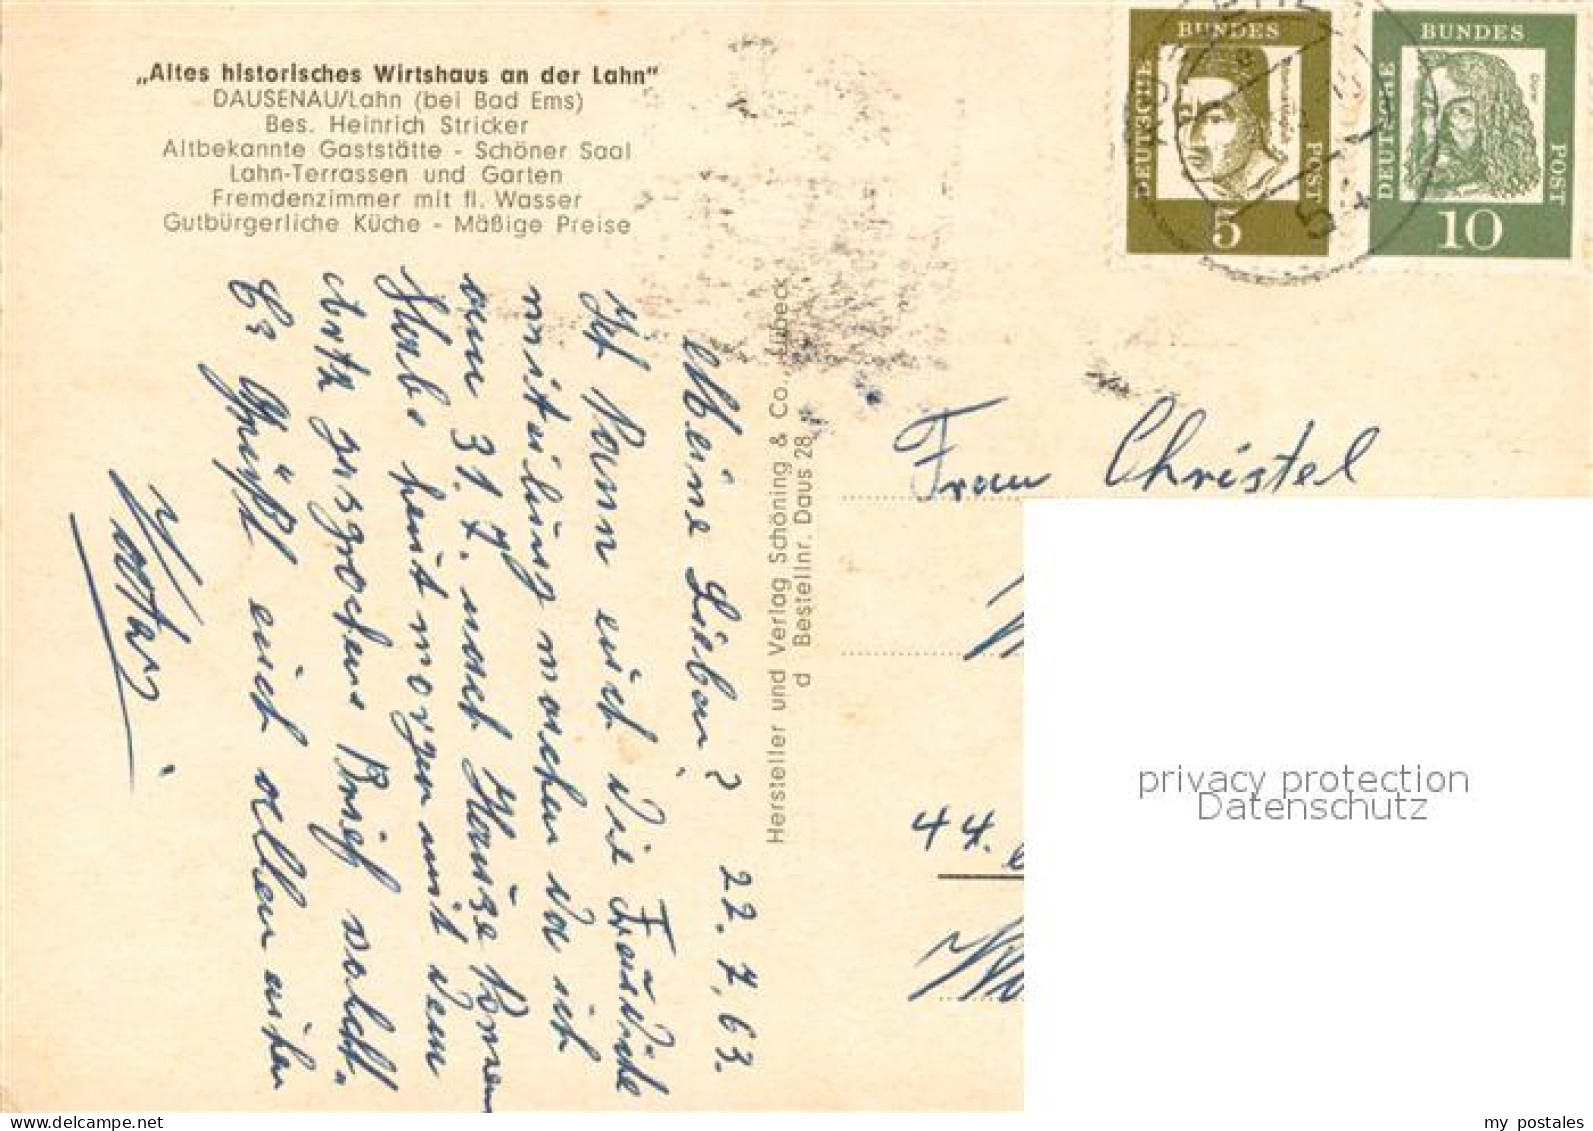 „Altes historisches Wirtshaus an der Lahn"
DAUSENAU/Lahn (bei Bad Ems)
Bes. Heinrich Stricker
Altbekannte Gaststätte - Schöner Saal
Lahn-Terrassen und Garten
Fremdenzimmer mit fl. Wasser
Gutbürgerliche Küche - Mäßige Preise
22. 7. 63.
Meine Lieben!
Ich kann euch die
mitteilung machen da ich
am 31. 7. nach Hause komm
Habe heut morgen mit dem
Artz gesprochen
Es Grüßt euch allen
Herstellung und Verlag Schöning & Co., Lübeck
d Bestellnr. Daus 28
DEUTSCHE
BUNDES
POST
5
DEUTSCHE
BUNDES
POST
10
54
Frau Christel
44.
privacy protection
Datenschutz
www.delcampe.net
my_postales